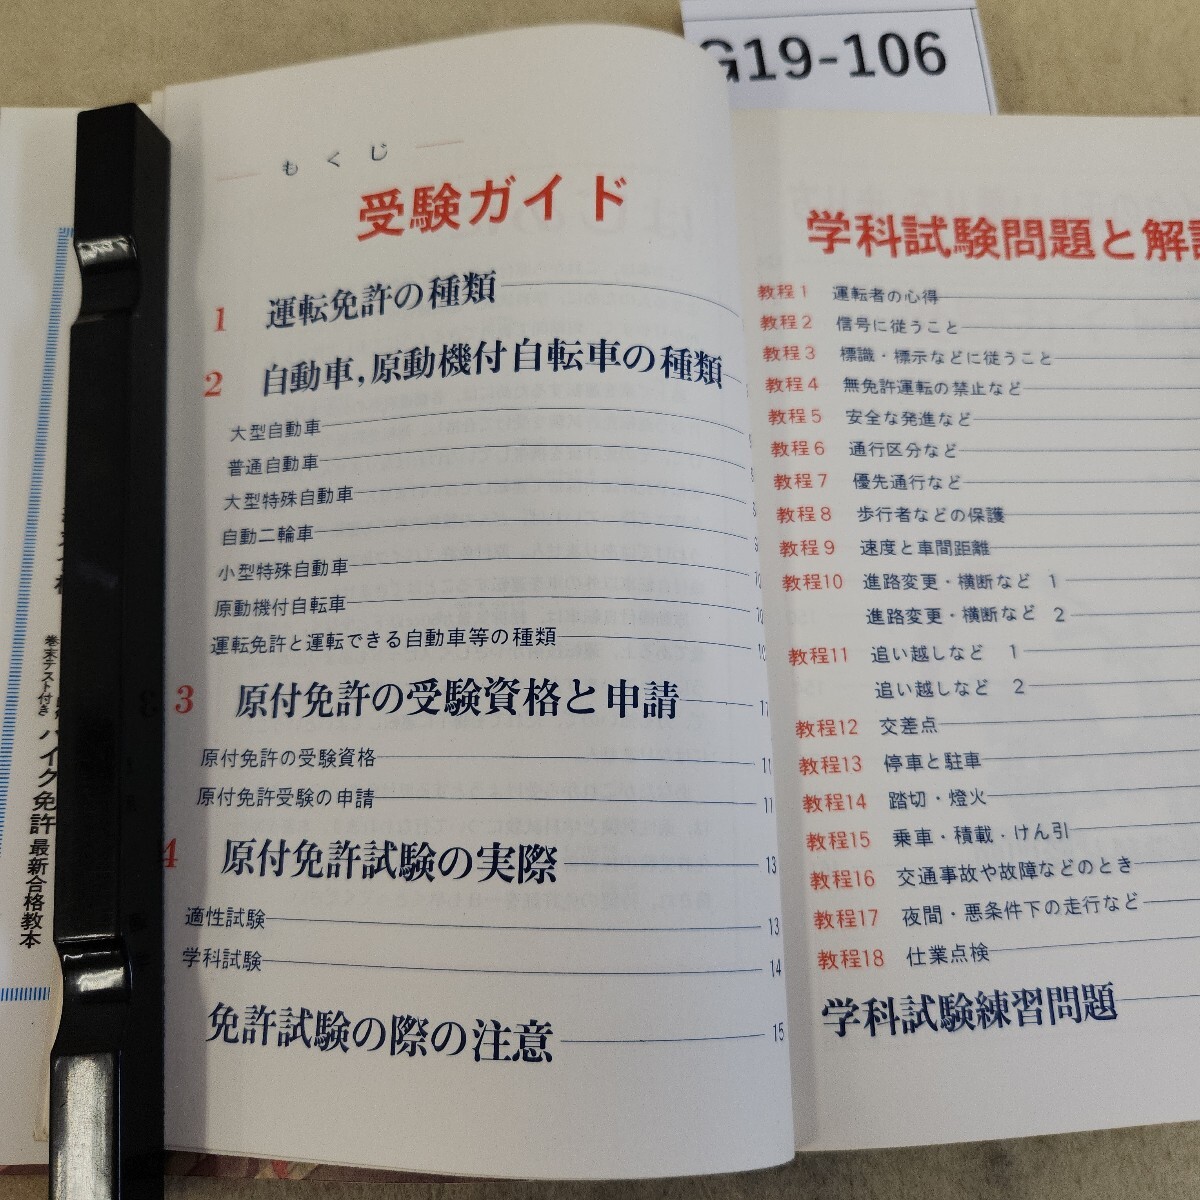 G19-106
もくじ
受験ガイド
1 運転免許の種類
2 自動車,原動機付自転車の種類
大型自動車
普通自動車
大型特殊自動車
自動二輪車 9
小型特殊自動車
原動機付自転車 10
運転免許と運転できる自動車等の種類 10
3 原付免許の受験資格と申請 11
原付免許の受験資格 11
原付免許受験の申請 11
4 原付免許試験の実際 13
適性試験 13
学科試験 14
免許試験の際の注意 15
学科試験問題と解説
教程1 運転者の心得
教程2 信号に従うこと
教程3 標識・標示などに従うこと
教程4 無免許運転の禁止など
教程5 安全な発進など
教程6 通行区分など
教程7 優先通行など
教程8 歩行者などの保護
教程9 速度と車間距離
教程10 進路変更・横断など 1
進路変更・横断など 2
教程11 追い越しなど 1
追い越しなど 2
教程12 交差点
教程13 停車と駐車
教程14 踏切・燈火
教程15 乗車・積載・けん引
教程16 交通事故や故障などのとき
教程17 夜間・悪条件下の走行など
教程18 仕業点検
学科試験練習問題
巻末テスト付き
バイク免許 最新合格教本